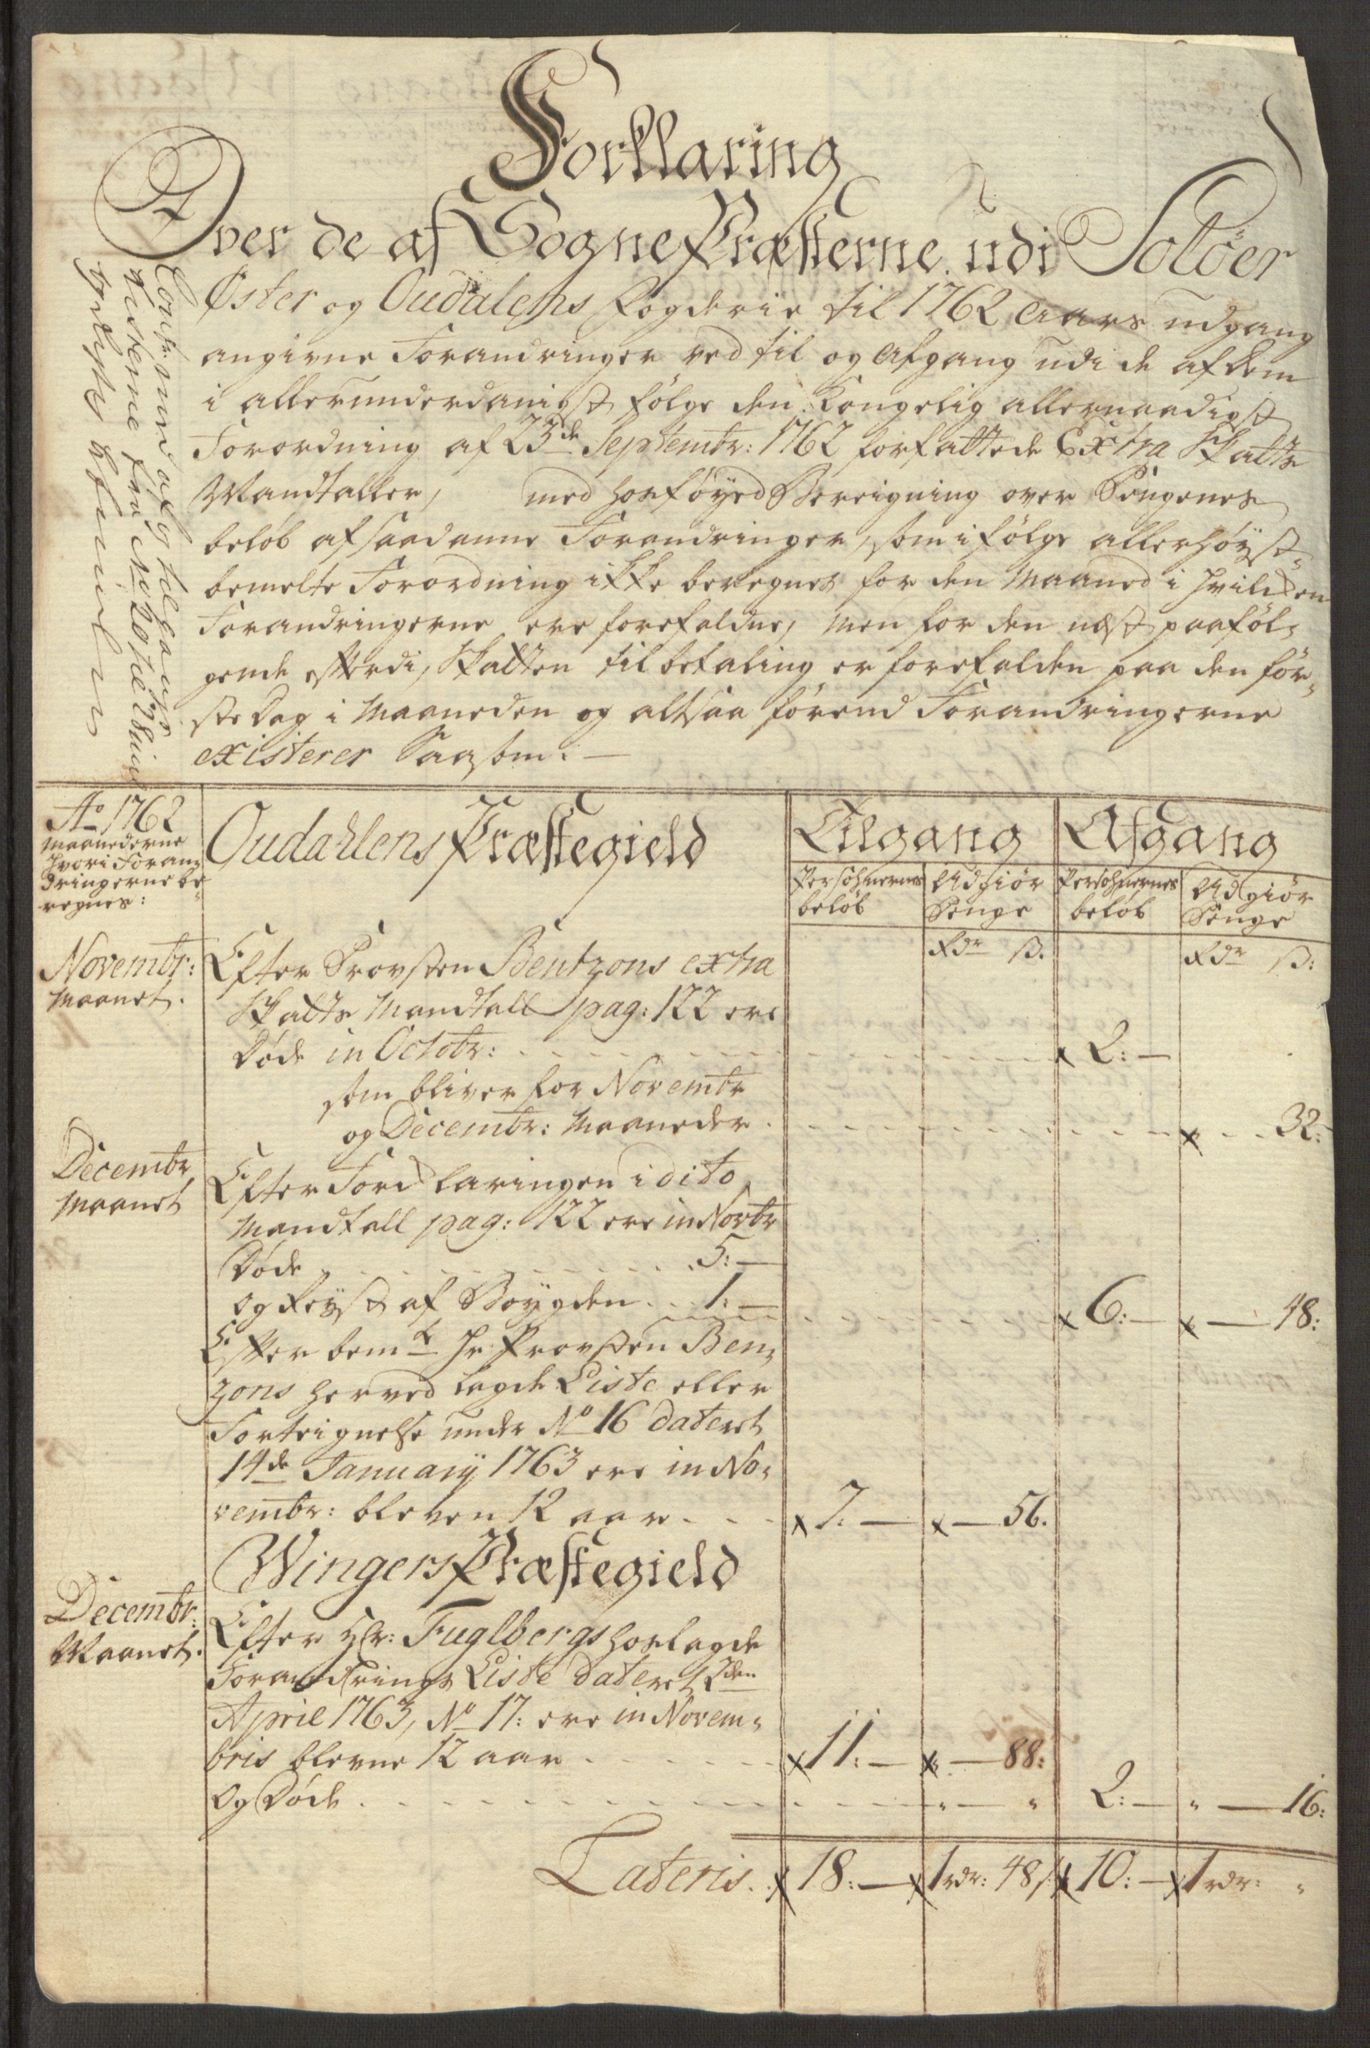 Forklaring
Over de af SognePræsterne udi Soløer
Øster og Oudalens Fogderie til 1762 Aars udgang
angivne Forandringer ved til og Afgang udi de af dem
i allerunderdanigst følge den Kongelig allernaadigst
Forordning af 23de Septembr: 1762 forfattede Extra Skatts
Mandtaller, med hosføyed Bereigning over Pengenes
beløb af saadanne Forandringer, som i følge allerhøyst
bemelte Forordning ikke beregnes for den Maaned i hvilcken
Forandringerne ere forefaldne, Men for den næst paaføl-
gende efterdi, Skatten til betaling er forefalden paa den før-
ste Dag i Maaneden og altsaa førend Forandringerne
existerer Saasom: —
af og tilgangs
Listerne fra No
Ao 1762
Maanederne
hvori Foran-
dringerne be-
regnes:
Oudahlens Præstegield
Tilgang
Afgang
Persohnernes
beløb
Udgiør
Penge
Persohnernes
beløb
Udgiør
Penge
Rdr ß.
Rdr ß:
Novembr:
Maanet.
Efter Provsten Bentzons extra
Skatts Mandtall pag: 122 ere
Døde in Octobr: 2: —
som bliver for Novembr
og Decembr: Maaneder 32:
Decembr
Maanet
Efter Forcklaringen i dito
Mandtall pag: 122 ere in Novbr
Døde 5: —
og Reyst af Bøygden 1: — 6: — — 48:
Efter bemte Hr Provsten Ben-
zons herved lagde Liste eller
Forteignelse under No 16 dateret
14de January 1763 ere in No-
vembr: bleven 12 aar 7: — — 56.
Wingers Præstegield
Decembr:
Maanet.
Efter Hr: Fuglbergs hoslagde
Forandrings Liste dateret den
April 1763, No 17: ere in Novem-
bris blevne 12 aar 11: — — 88:
Og Døde " — " 2: — " — 16:
Lateris. 18: — 1 rdr: 48 ß 10: — 1 rdr: "